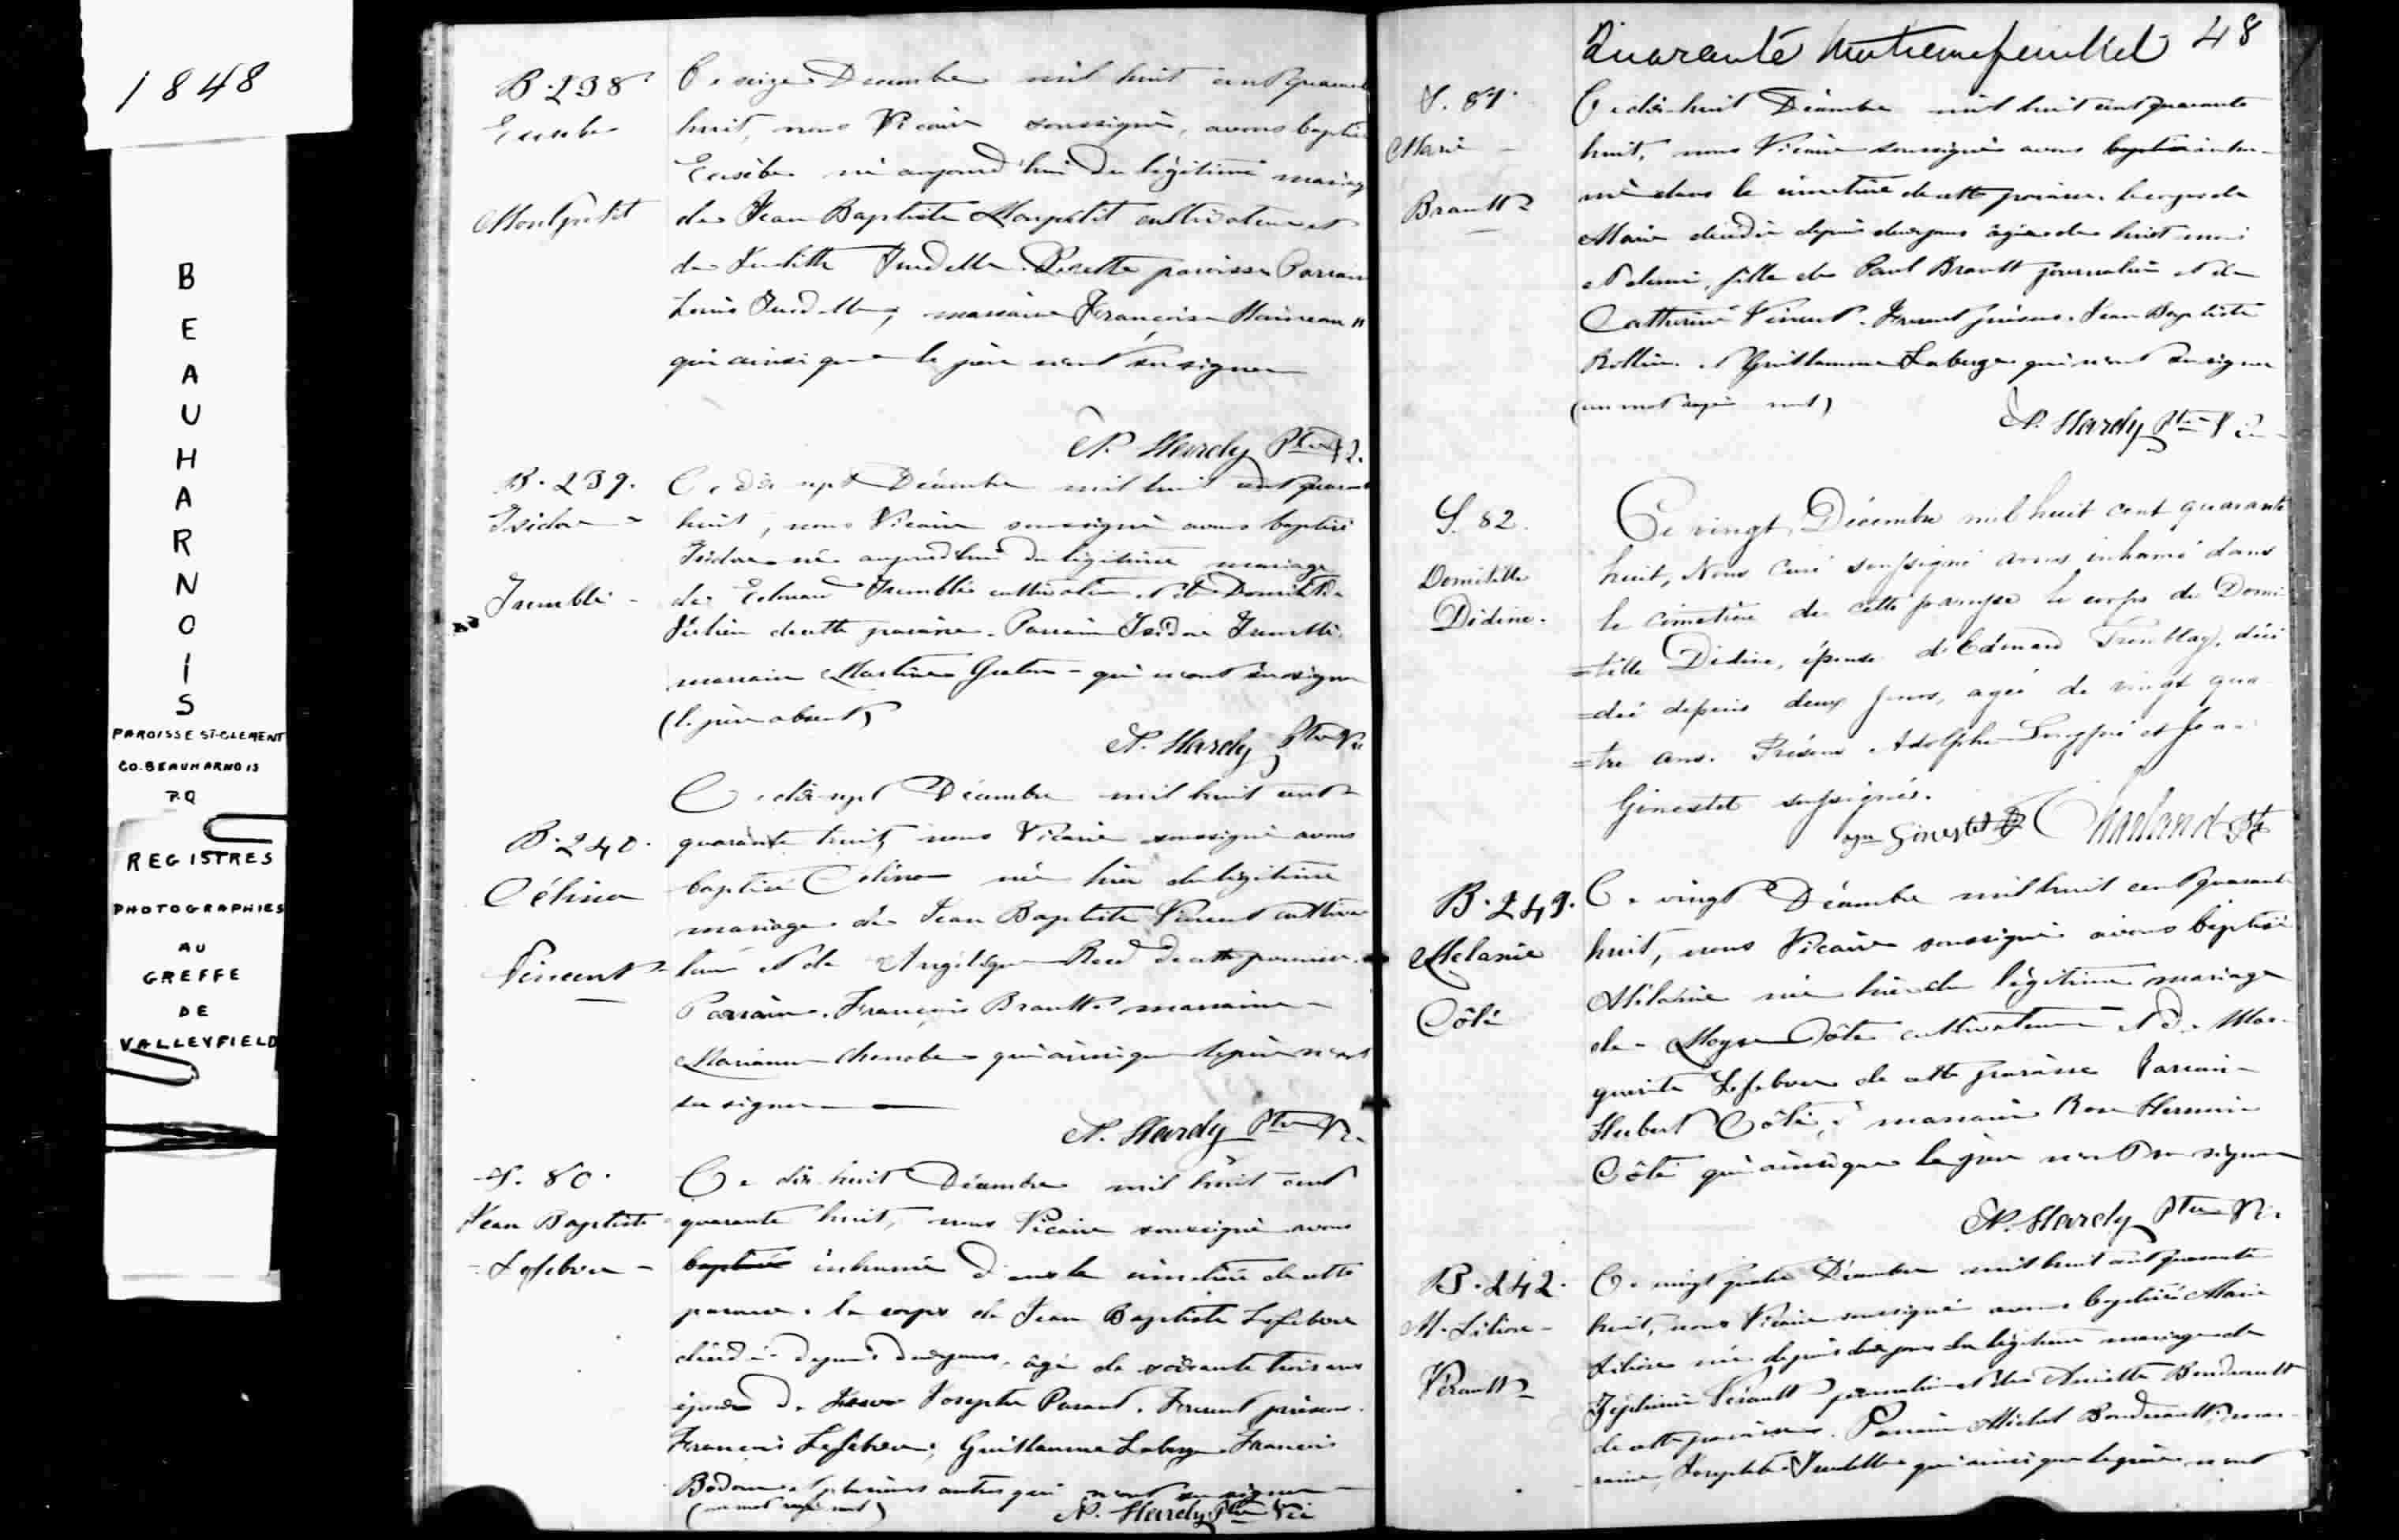 1848
BEAUHARNOIS
PAROISSE ST-CLEMENT
CO. BEAUHARNOIS
P.Q
REGISTRES
PHOTOGRAPHIES
AU
GREFFE
DE
VALLEYFIELD
B. 238
Eusebe
Montpetit
Ce seize Décembre mil huit cent quarante
huit, nous Vicaire soussigné, avons baptisé
Eusèbe né aujourd'hui du légitime mariage
de Jean Baptiste Monpetit cultivateur et
de Judith paroisse Parrain
Louis marraine Françoise
qui ainsi que le père n'ont su signer
N. Hardy Ptre V.
B. 239.
Isidore
Tremblé
Ce dix sept Décembre mil huit cent quarante
huit, nous Vicaire soussigné avons baptisé
Isidore né aujourd'hui du légitime mariage
de Edouard Tremblé cultivateur et de Domitilde
de cette paroisse. Parrain Isidore Tremblé
marraine qui n'ont su signer
(le père absent)
N. Hardy Ptre Vic
B. 240.
Célina
Vincent
Ce dix-sept Décembre mil huit cent
quarante huit, nous Vicaire soussigné avons
baptisé Célina née hier du légitime
mariage de Jean Baptiste Vincent cultiva
teur et de Angélique de cette paroisse.
Parrain François Brault marraine
Marianne qui ainsi que le père n'ont
su signer
N. Hardy Ptre Vic.
S. 80.
Jean Baptiste
Lefebvre
Ce dix-huit Décembre mil huit cent
quarante huit, nous Vicaire soussigné avons
baptisé inhumé dans le cimetière de cette
paroisse le corps de Jean Baptiste Lefebvre
décédé depuis deux jours, âgé de soixante trois ans
époux de Josephte Parant. Furent présens
François Lefebvre, Guillaume Laberge François
et plusieurs autres qui n'ont su signer
(un mot rayé nul)
N. Hardy Ptre Vic
Quarante huitième feuillet 48
S. 81.
Marie
Brault
Ce dix-huit Décembre mil huit cent quarante
huit, nous Vicaire soussigné avons baptisé inhu
mé dans le cimetière de cette paroisse le corps de
Marie décédée depuis deux jours âgée de huit mois
et demi, fille de Paul Brault journalier et de
Catherine Vincent. Furent présens Jean Baptiste
et Guillaume Laberge qui n'ont su signer
(un mot rayé nul)
N. Hardy Ptre V
S. 82.
Domitille
Didine.
Ce vingt Décembre mil huit cent quarante
huit, Nous Curé soussigné avons inhumé dans
le cimetière de cette paroisse le corps de Domi
=tille Didine, épouse de Edouard Tremblay, décé
=dée depuis deux jours, agée de vingt qua
=tre ans. Présens Adolphe et Jean
Ginestet soussignés.
Ginestet Charland Ptre
B. 241.
Melanie
Côté
Ce vingt Décembre mil huit cent quarante
huit, nous Vicaire soussigné avons baptisé
Mélanie née hier du légitime mariage
de Moyse Côté cultivateur et de Mar
guerite Lefebvre de cette paroisse Parrain
Hubert Côté, marraine Rose
Côté qui ainsi que le père n'ont su signer
N. Hardy Ptre Vic.
B. 242.
M.
Vérault
Ce vingt quatre Décembre mil huit cent quarante
huit, nous Vicaire soussigné avons baptisé Marie
née depuis deux jours du légitime mariage de
Zéphirin Vérault journalier et de Boudreault
de cette paroisse. Parrain Michel Boudreault, mar
raine, Josephte qui ainsi que le père n'ont